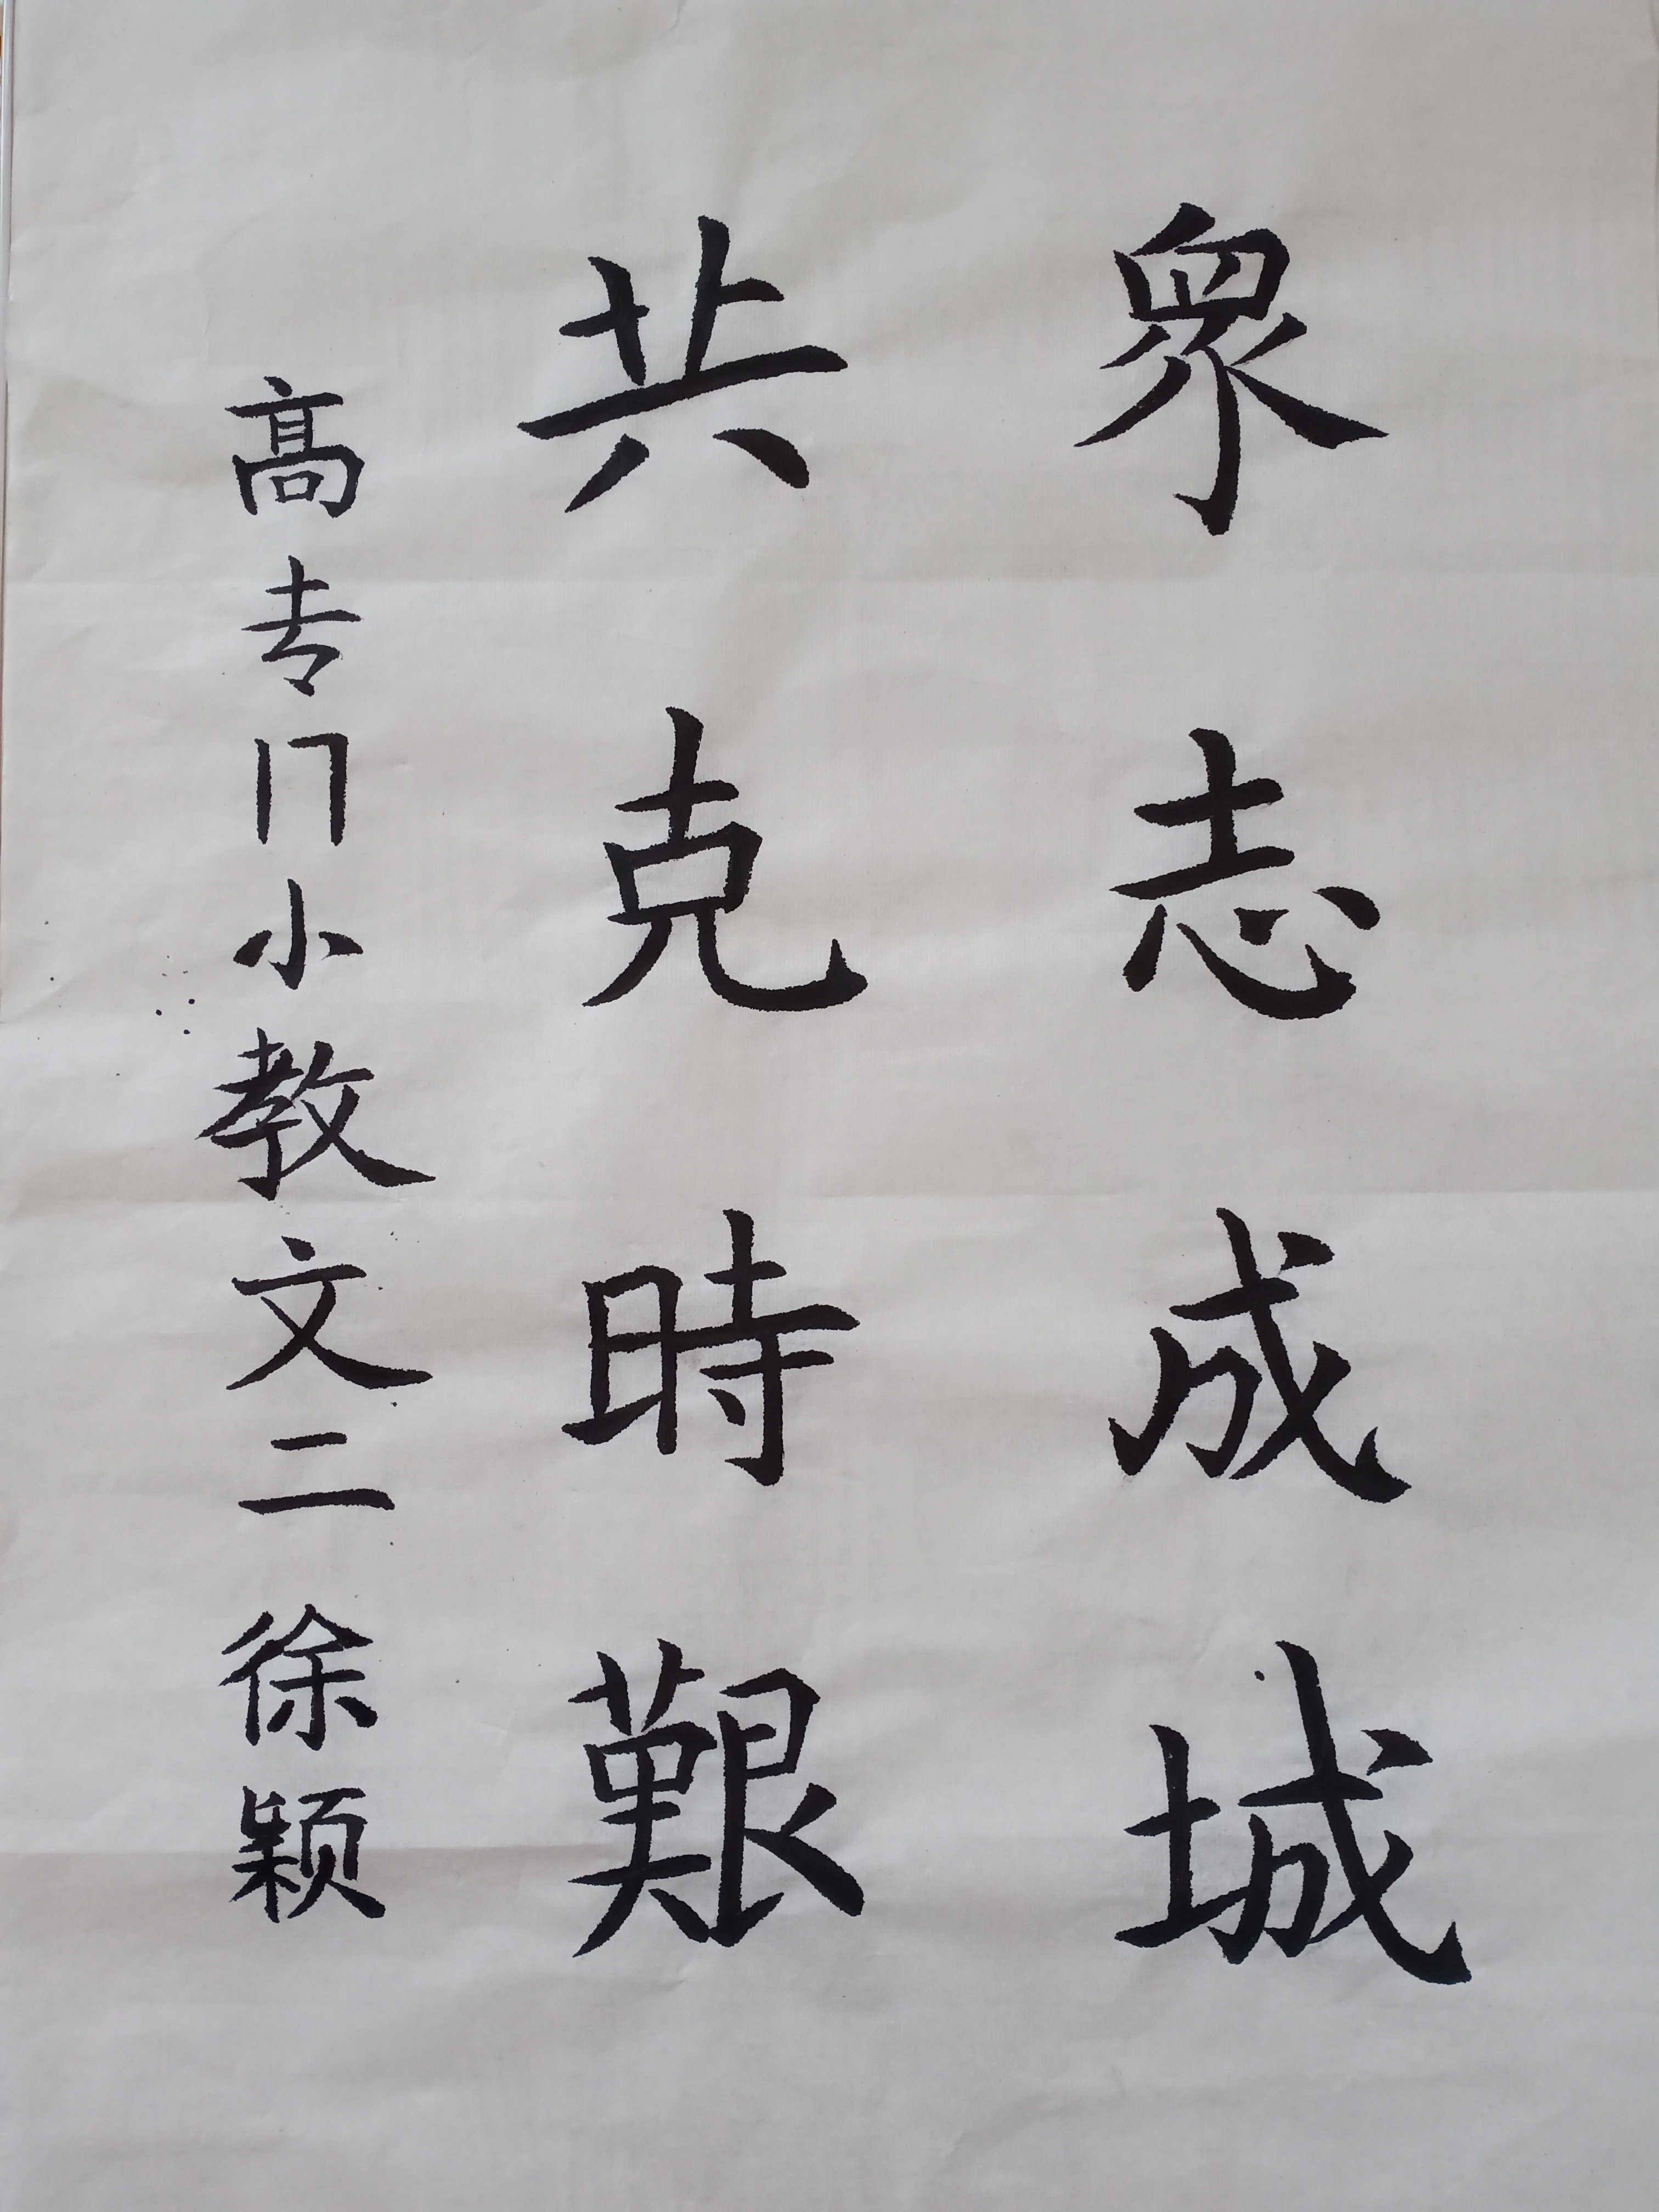 眾志成城
共克時艱
高专门小教文二 徐颖